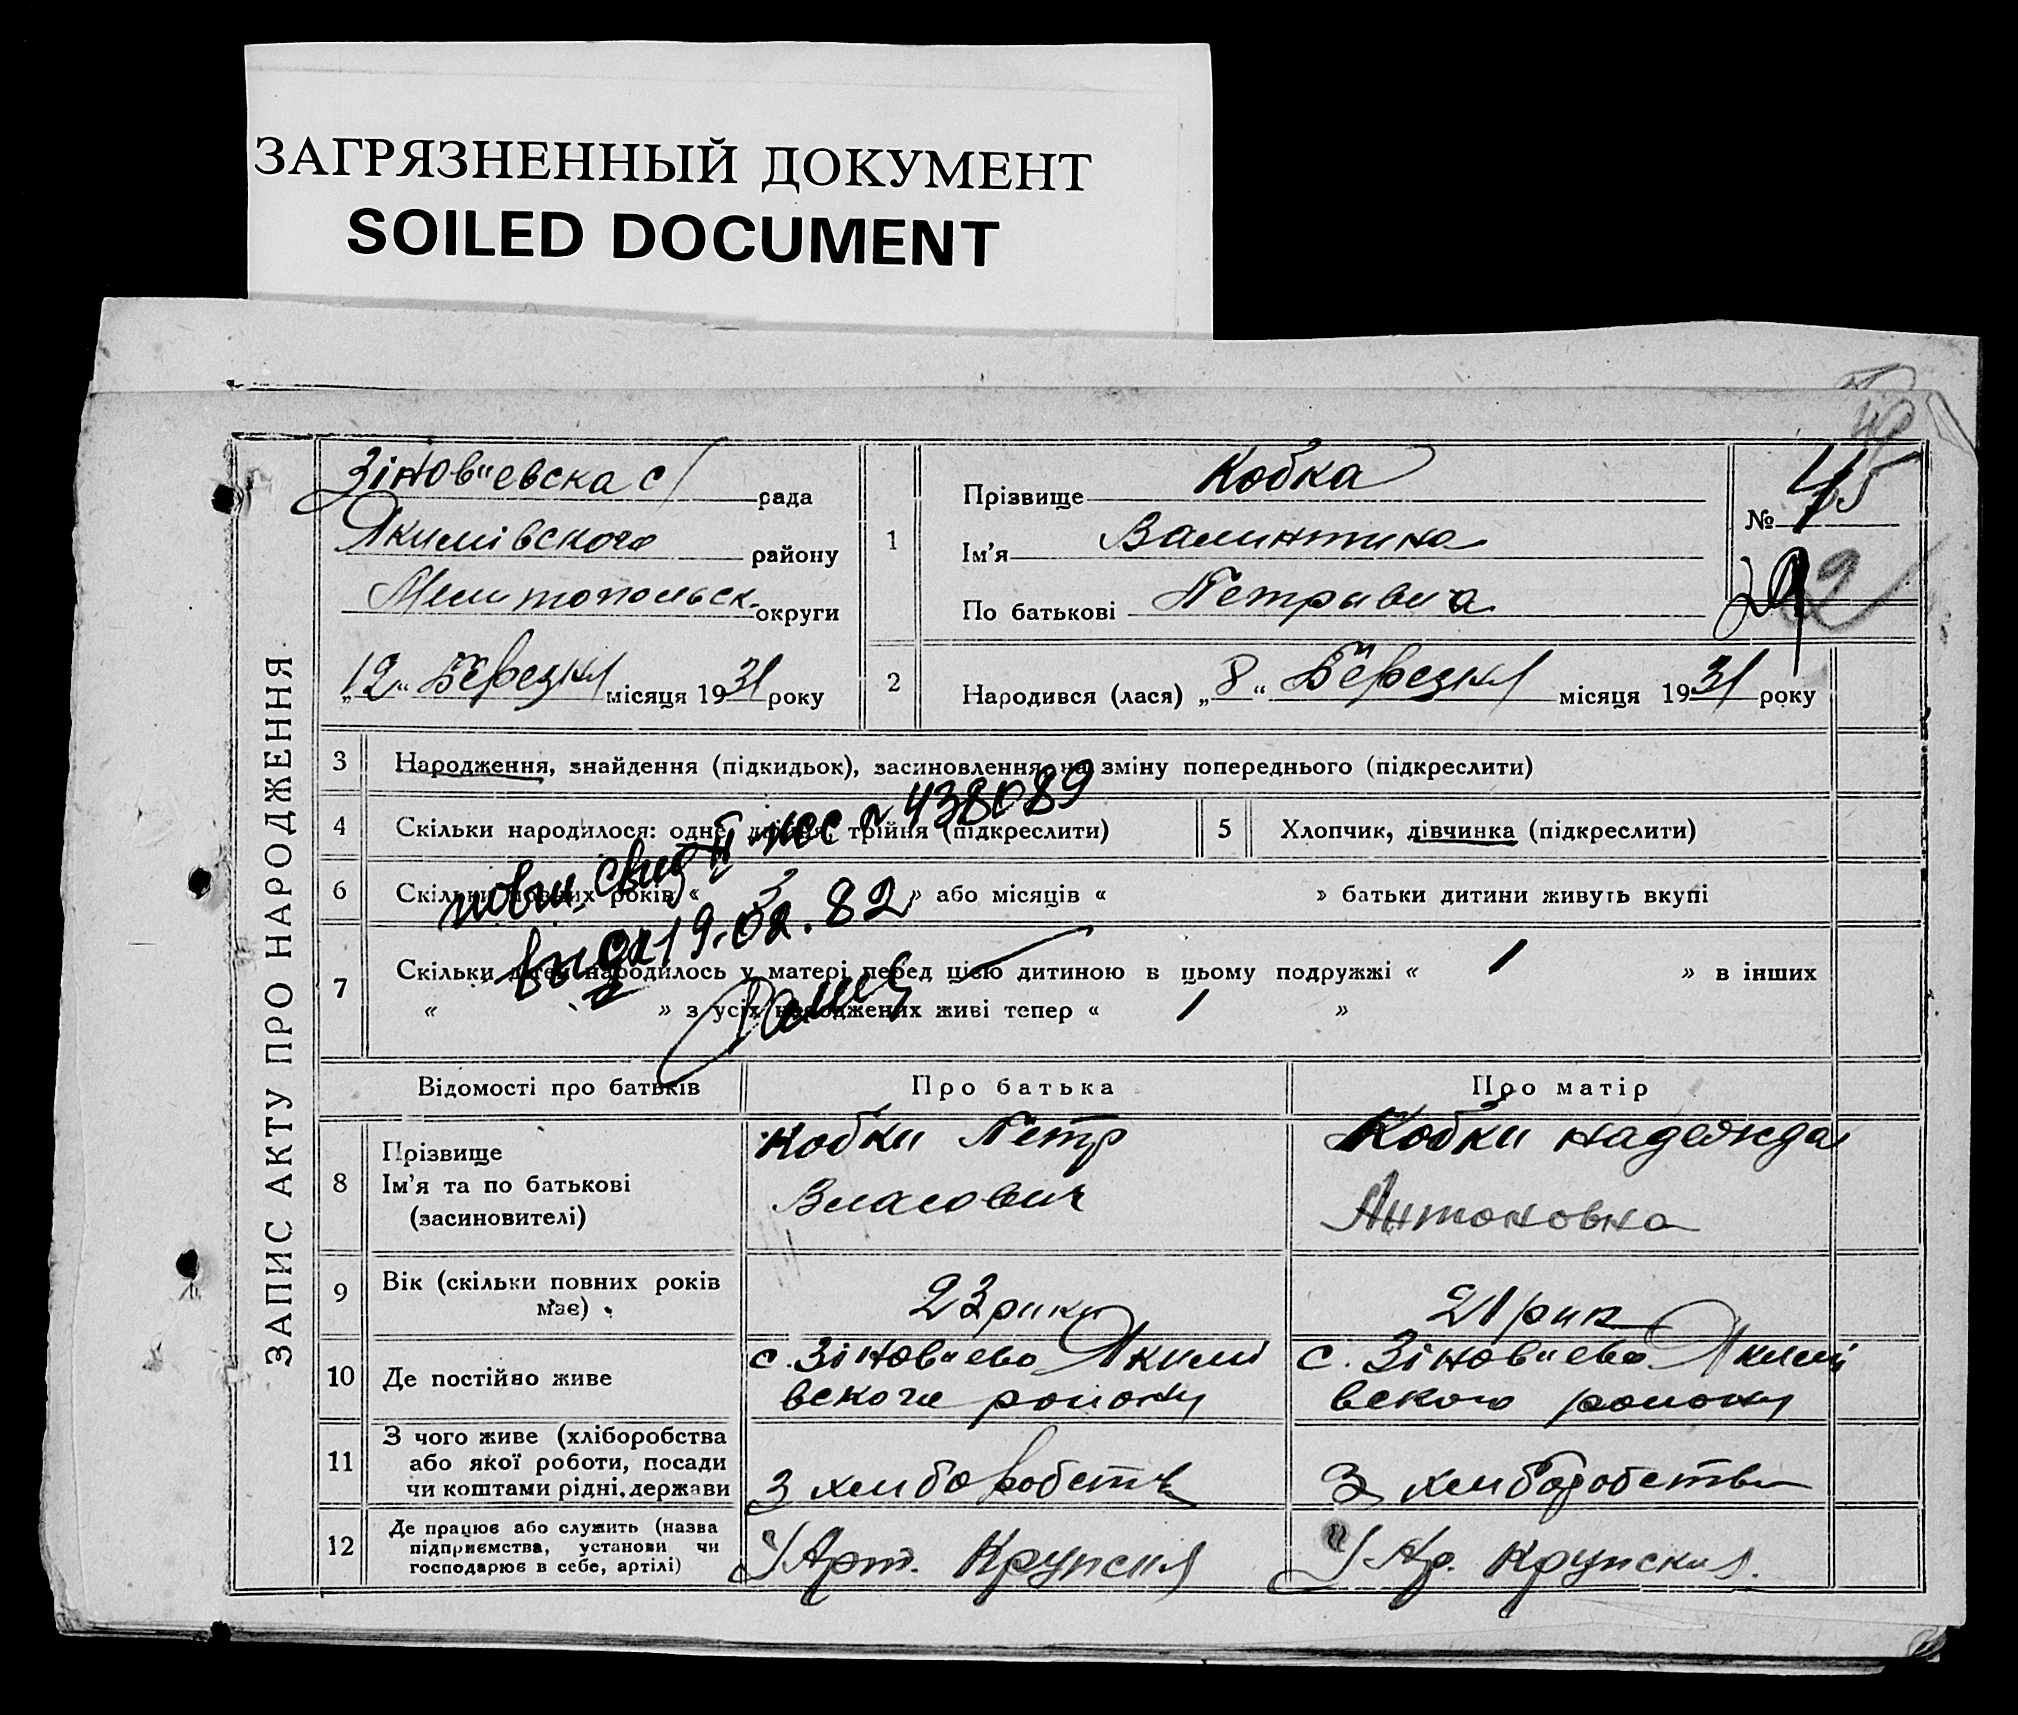 ЗАГРЯЗНЕННЫЙ ДОКУМЕНТ
SOILED DOCUMENT
ЗАПИС АКТУ ПРО НАРОДЖЕННЯ
Зіновиевска с/рада
Якимівского району
Мелитопольск. округи
„12“ Березня місяця 1931 року
1
Прізвище Кобка
Ім'я Валинтина
По батькові Петривна
№ 45
29
2
2 Народився (лася) „8“ Березня місяця 1931 року
3 Народження, знайдення (підкидьок), засиновлення на зміну попереднього (підкреслити)
4 Скільки народилося: одне, двійня, трійня (підкреслити)
5 Хлопчик, дівчинка (підкреслити)
438089
6 Скільки повних років « 3 » або місяців « » батьки дитини живуть вкупі
повт. свид II
выд 19.02.82
7 Скільки дітей народилось у матері перед цією дитиною в цьому подружжі « 1 » в інших
« » з усіх народжених живі тепер « 1 »
Відомості про батьків Про батька Про матір
8 Прізвище
Ім'я та по батькові
(засиновителі)
Кобки Петр
Власович
Кобки Надежда
Антоновна
9 Вік (скільки повних років
має)
23 рики
21 рик
10 Де постійно живе
с. Зіновиево Якимі
вского району
с. Зіновиево Якими
вского району
11 З чого живе (хліборобства
або якої роботи, посади
чи коштами рідні, держави
З хлиборобств
З хлиборобства
12 Де працює або служить (назва
підприємства, установи чи
господарює в себе, артілі)
У Арт. Крупския
У Ар. Крупския.